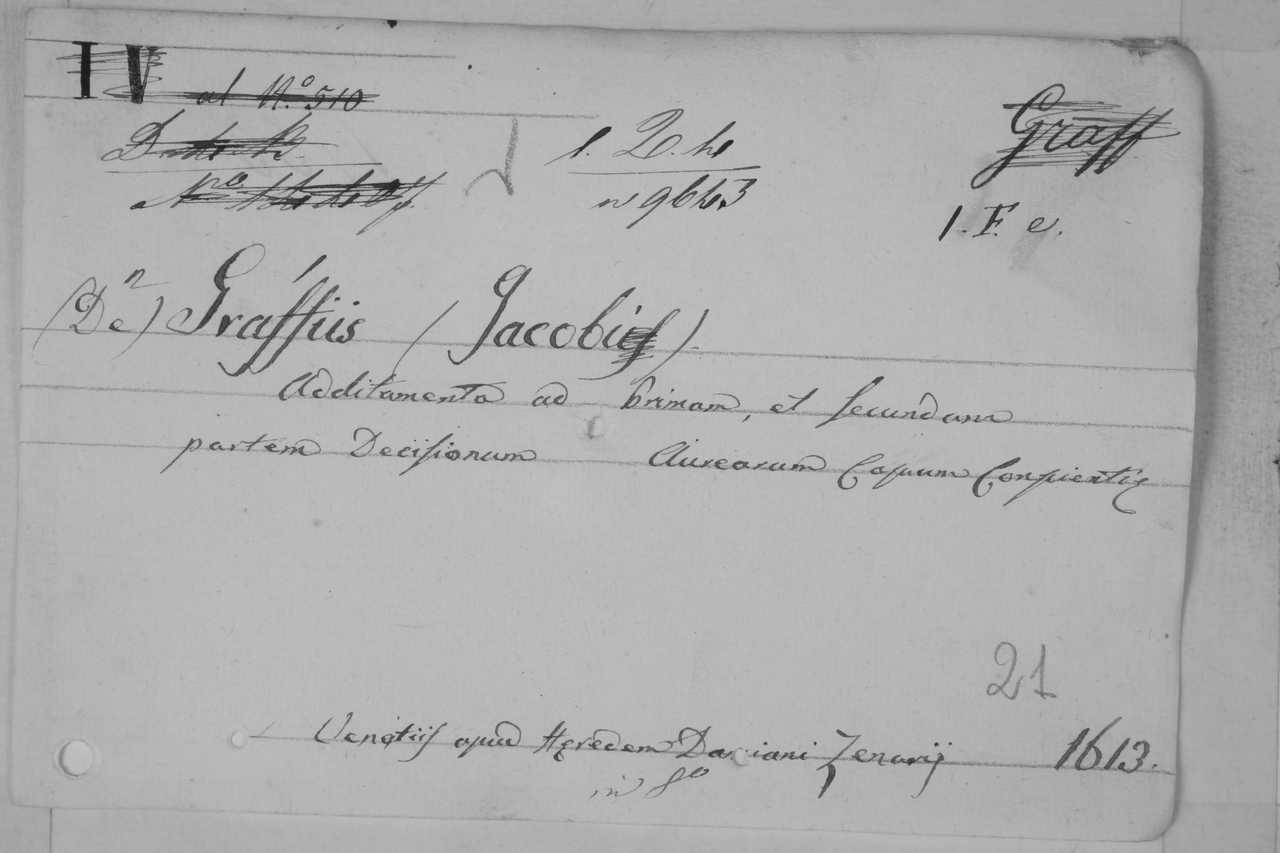 IV al N.º 510
Graff
1. F. e.
(De) Graffiis (Jacobi)
Additamenta ad primam, et secundam
partem Decisionum Aurearum Casuum Conscientię
21
Venetiis apud Hęredem Damiani Zenarij 1613.
in 8º